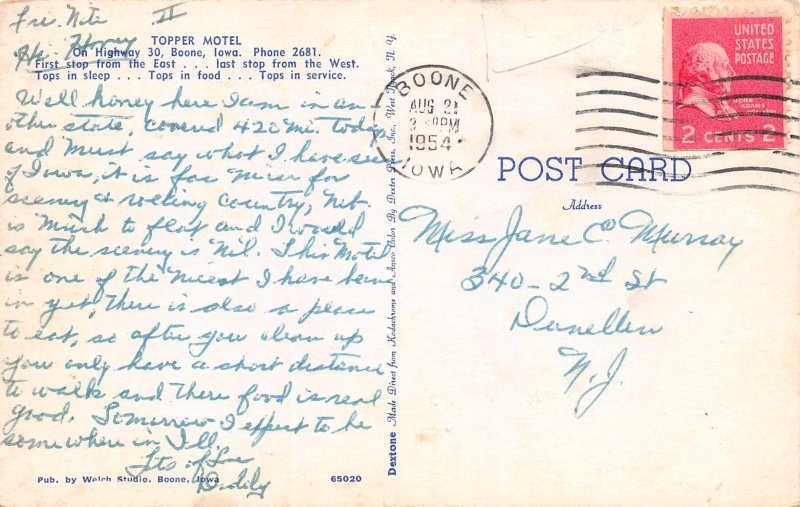 Fri. Nite II
Hi Honey
TOPPER MOTEL
On Highway 30, Boone, Iowa. Phone 2681.
First stop from the East . . . last stop from the West.
Tops in sleep . . . Tops in food . . . Tops in service.
Well honey here I am in an-
other state, covered 420 Mi. today
and must say what I have seen
of Iowa, it is far nicer for
scenery & rolling country, Neb.
is much to flat and I would
say the scenery is Nil. This Motel
is one of the nicest I have been
in yet, there is also a place
to eat, so after you clean up
you only have a short distance
to walk and there food is real
good. Tomorrow I expect to be
somewhere in Ill.
Lots of Love
Daddy
Pub. by Welch Studio, Boone, Iowa 65020
Dextone Made Direct from Kodachrome and Ansco Color By Dexter Press, Inc., West Nyack, N. Y.
BOONE
AUG 21
PM
1954
IOWA
UNITED
STATES
POSTAGE
JOHN
ADAMS
2 CENTS 2
POST CARD
Address
Miss Jane C. Murray
340 - 2nd St
Dunellen
N.J.